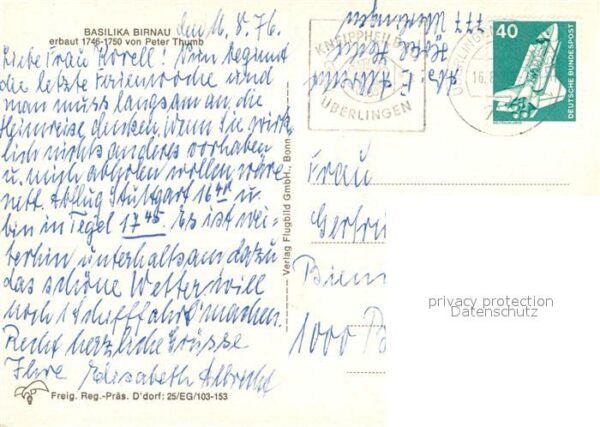 BASILIKA BIRNAU
erbaut 1746-1750 von Peter Thumb
den 16. 8. 76.
Liebe Frau Korell! Nun beginnt
die letzte Ferienwoche und
man muss langsam an die
Heimreise denken. Wenn Sie wirk-
lich nichts anderes vorhaben
u. mich abholen wollen, wäre
nett. Abflug Stuttgart 16 40 u.
bin in Tegel 17 45. Es ist wei-
terhin unterhaltsam dazu
das schöne Wetter will
noch 1 Schifffahrt machen.
Recht herzliche Grüsse
Ihre Elisabeth Albrecht
Freig. Reg.-Präs. D'dorf: 25/EG/103-153
Verlag Flugbild GmbH., Bonn
Abs: E. Albrecht
Hotel
777 Überlingen
KNEIPPHEILBAD
ÜBERLINGEN
ÜBERLINGEN
16.8.
40
DEUTSCHE BUNDESPOST
Frau
Gertru
1000
privacy protection
Datenschutz